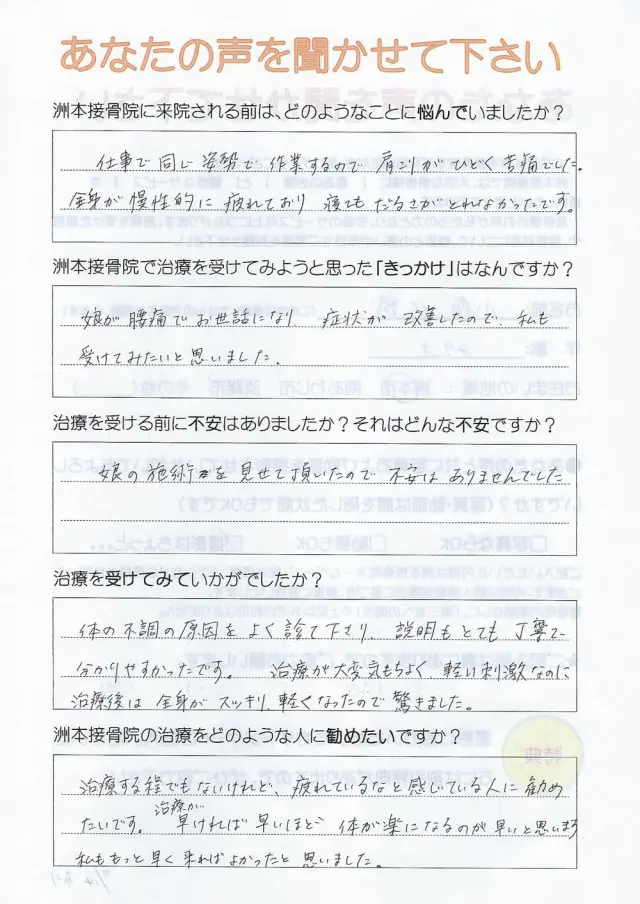 あなたの声を聞かせて下さい
洲本接骨院に来院される前は、どのようなことに悩んでいましたか？
仕事で同じ姿勢で作業するので肩こりがひどく苦痛でした。
全身が慢性的に疲れており寝てもだるさがとれなかったです。
洲本接骨院で治療を受けてみようと思った「きっかけ」はなんですか？
娘が腰痛でお世話になり、症状が改善したので、私も
受けてみたいと思いました。
治療を受ける前に不安はありましたか？それはどんな不安ですか？
娘の施術を見せて頂いたので不安はありませんでした
治療を受けてみていかがでしたか？
体の不調の原因をよく診て下さり、説明もとても丁寧で
分かりやすかったです。治療が大変気もちよく、軽い刺激なのに
治療後は全身がスッキリ、軽くなったので驚きました。
洲本接骨院の治療をどのような人に勧めたいですか？
治療する程でもないけれど、疲れているなと感じている人に勧め
治療が
たいです。早ければ早いほど体が楽になるのが早いと思います
私ももっと早く来ればよかったと思いました。